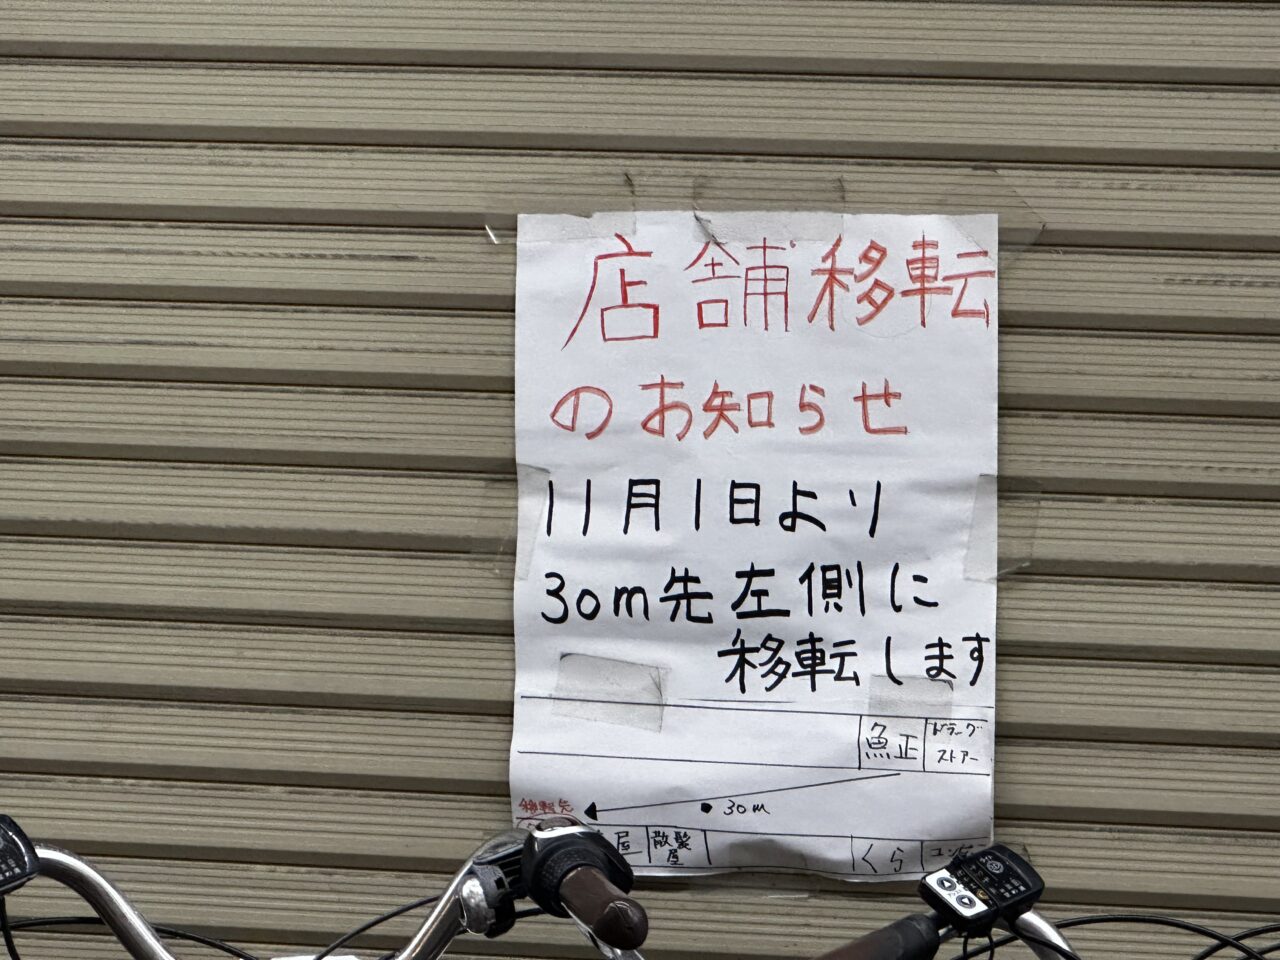 店舗移転
のお知らせ
11月1日より
30m先左側に
移転します
魚正
ドラッグ
ストアー
移転先
30m
屋
散髪
屋
くら